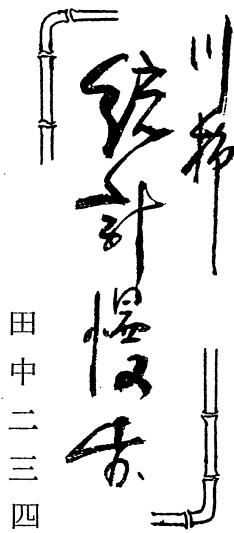 川柳
統計慢歩
田中二三四